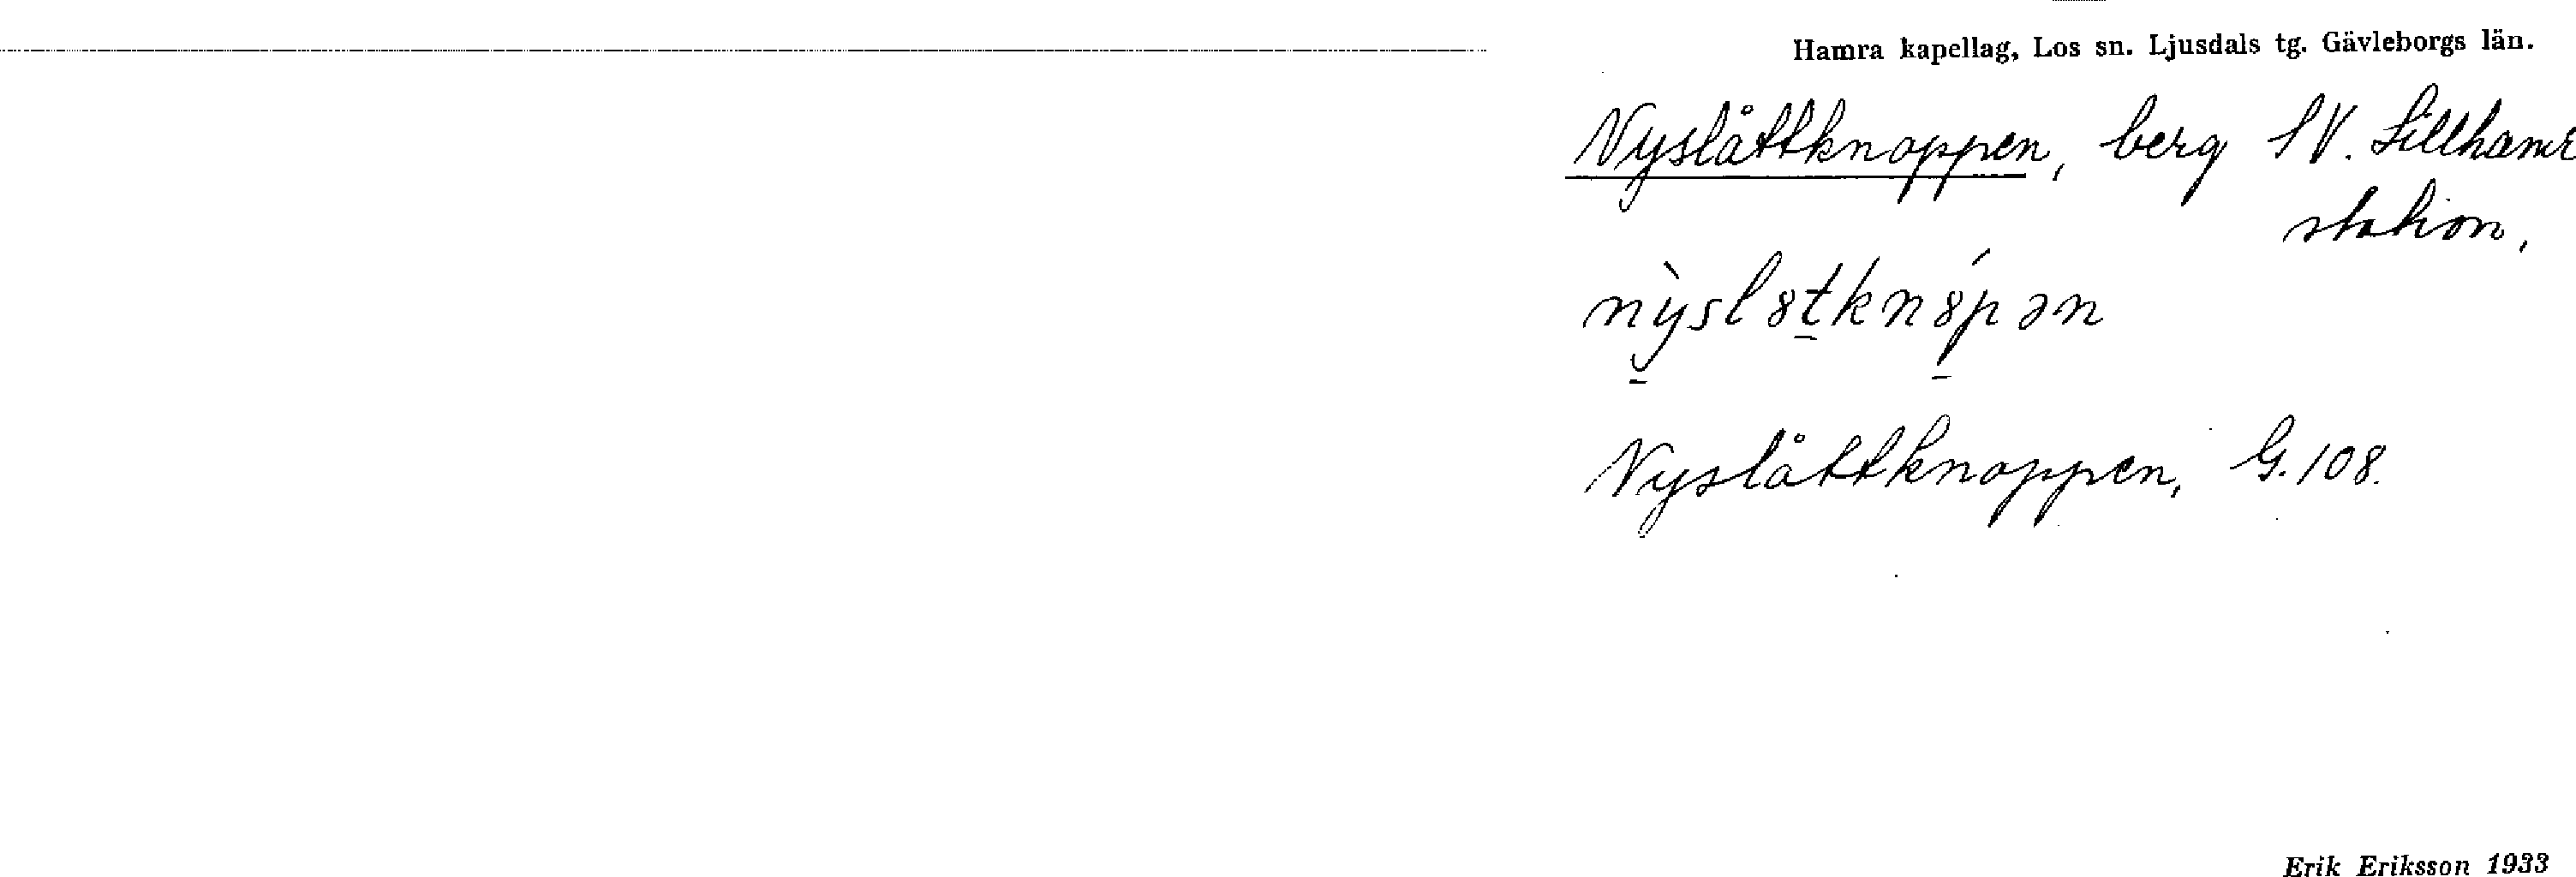 Hamra kapellag, Los sn. Ljusdals tg. Gävleborgs län.
Nyslåttknoppen, berg SV. Lillhamr
station,
nỳsl8tkn8́pən
Nyslåttknoppen, G. 108.
Erik Eriksson 1933